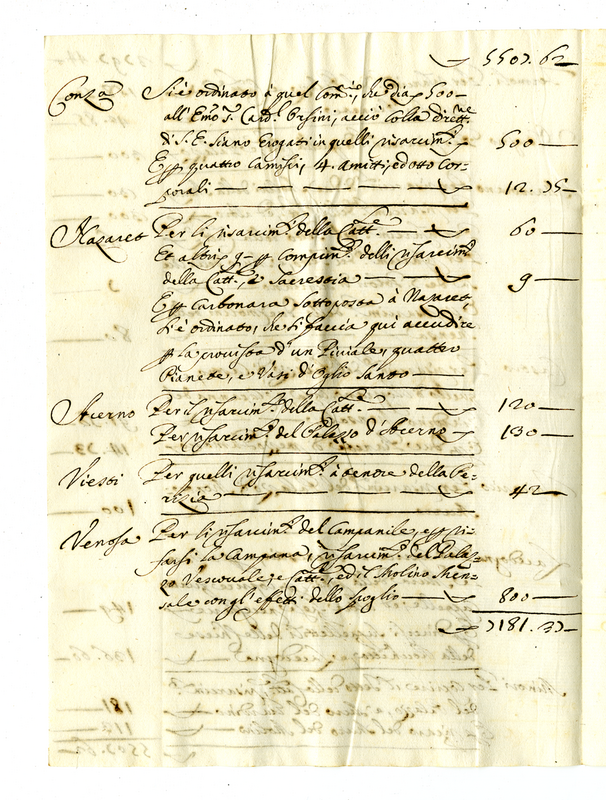 5507. 62
Conza Si è ordinato à quel Com:º, che dia 500
all'Emo S. Card.l Orsini, acciò colla dirett.ne
di S. E. siano erogati in quelli risarcim.ti 500
E p quattro Camisci, 4. Amitti, ed otto Cor-
porali 12. 75
Nazaret Per li risarcim.ti della Catt.le 60
Et altri 9 p compim.to delli risarcim.ti
della Catt.le, e Sacrestia 9
E p Carbonara sottoposta à Nazaret,
si è ordinato, che si faccia qui accudire
p la provista d'un Piviale, quattro
Pianete, e Vasi d'Oglio Santo
Acerno Per il risarcim.to della Catt.le 120
Per risarcim.to del Palazzo d'Acerno 130
Viesti Per quelli risarcim.ti à tenore della Pe-
rizia 42
Venosa Per li risarcim.ti del Campanile, e p ri-
farsi la Campana, risarcim.ti del Palaz-
zo Vescovale, e Catt.le, ed il Molino Men-
sale con gl'effetti dello spoglio 800
7181. 37